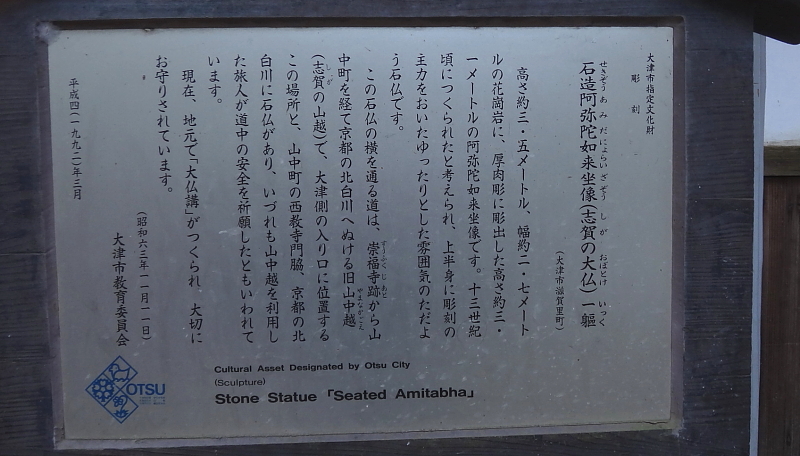 大津市指定文化財
彫刻
石造阿弥陀如来坐像(志賀の大仏)一軀
せきぞうあみだにょらいざぞう しが おぼとけ いっく
(大津市滋賀里町)
高さ約三・五メートル、幅約二・七メート
ルの花崗岩に、厚肉彫に彫出した高さ約三・
一メートルの阿弥陀如来坐像です。十三世紀
頃につくられたと考えられ、上半身に彫刻の
主力をおいたゆったりとした雰囲気のただよ
う石仏です。
この石仏の横を通る道は、崇福寺跡から山
そうふくじあと
中町を経て京都の北白川へぬける旧山中越
やまなかごえ
(志賀の山越)で、大津側の入り口に位置する
しが
この場所と、山中町の西教寺門脇、京都の北
白川に石仏があり、いづれも山中越を利用し
た旅人が道中の安全を祈願したともいわれて
います。
現在、地元で「大仏講」がつくられ、大切に
お守りされています。
(昭和六三年一一月一一日)
大津市教育委員会
平成四(一九九二)年三月
Cultural Asset Designated by Otsu City
(Sculpture)
Stone Statue「Seated Amitabha」
OTSU